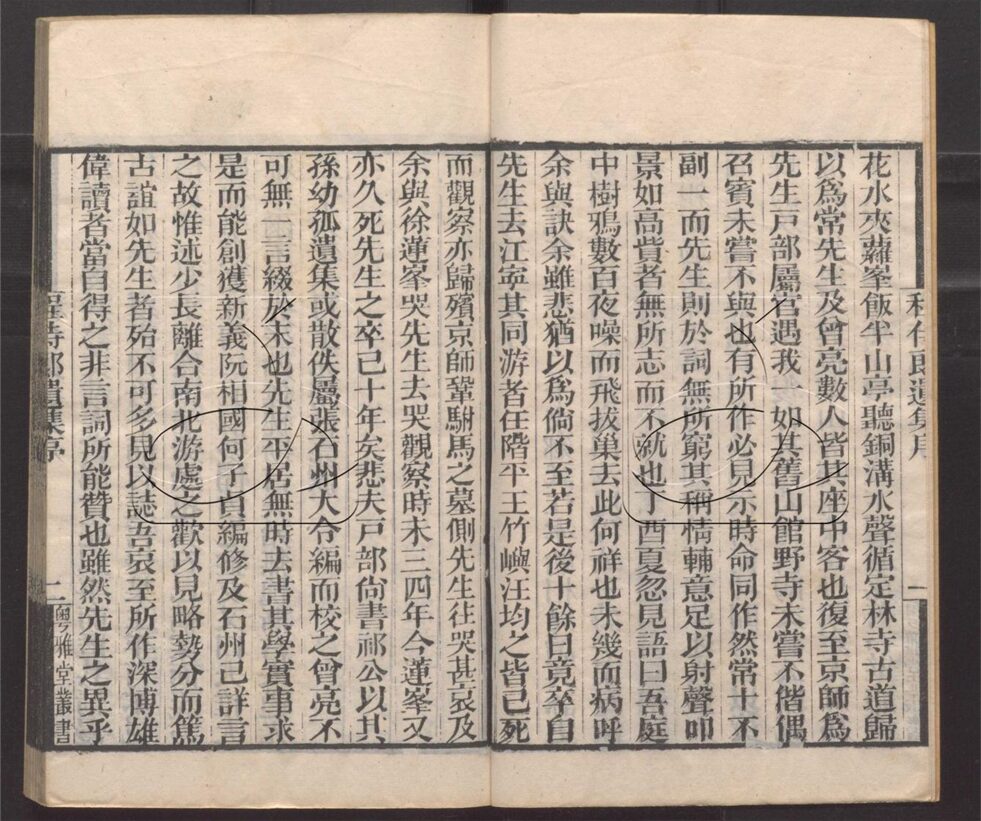 程侍郎遺集序
一
花水夾蘿峯飯半山亭聽銅溝水聲循定林寺古道歸
以爲常先生及曾亮數人皆其座中客也復至京師爲
先生戸部屬官遇我一如其舊山館野寺未嘗不偕偶
召賓未嘗不與也有所作必見示時命同作然常十不
副一而先生則於詞無所窮其稱情輔意足以射聲叩
景如高貲者無所志而不就也丁酉夏忽見語曰吾庭
中樹鴉數百夜噪而飛拔巢去此何祥也未幾而病呼
余與訣余雖悲猶以爲倘不至若是後十餘日竟卒自
先生去江寜其同游者任階平王竹嶼汪均之皆已死
而觀察亦歸殯京師鞏駙馬之墓側先生往哭甚哀及
余與徐蓮峯哭先生去哭觀察時未三四年今蓮峯又
亦久死先生之卒已十年矣悲夫戸部尙書祁公以其
孫幼孤遺集或散佚屬張石州大令編而校之曾亮不
可無一言綴於末也先生平居無時去書其學實事求
是而能創獲新義阮相國何子貞編修及石州已詳言
之故惟述少長離合南北游處之歡以見略勢分而篤
古誼如先生者殆不可多見以誌吾哀至所作深博雄
偉讀者當自得之非言詞所能贊也雖然先生之異乎
程侍郎遺集序
二
粤雅堂叢書